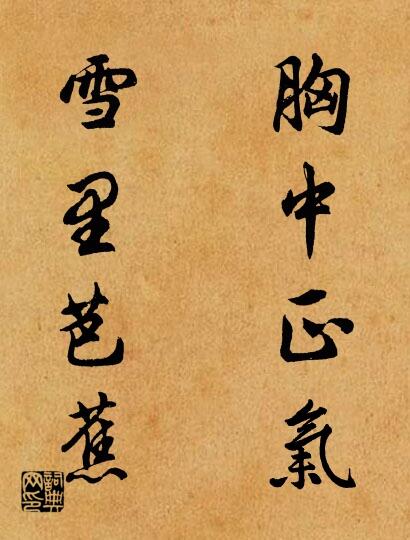 胸中正氣
雪里芭蕉
詞典网印